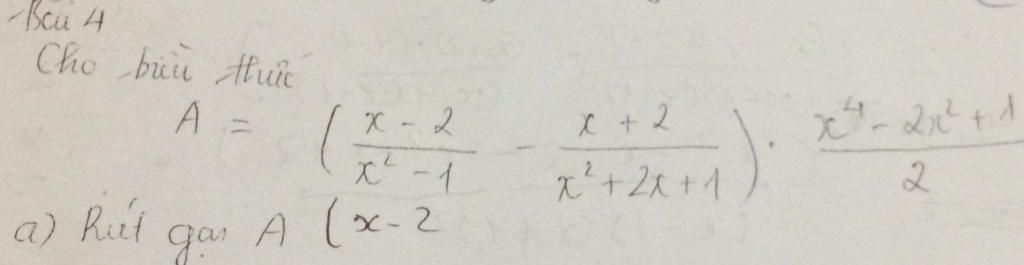 Bài 4
Cho biểu thức
A = ( (x - 2)/(x² - 1) - (x + 2)/(x² + 2x + 1) ) . (x⁴ - 2x² + 1)/2
a) Rút gọn A (x - 2